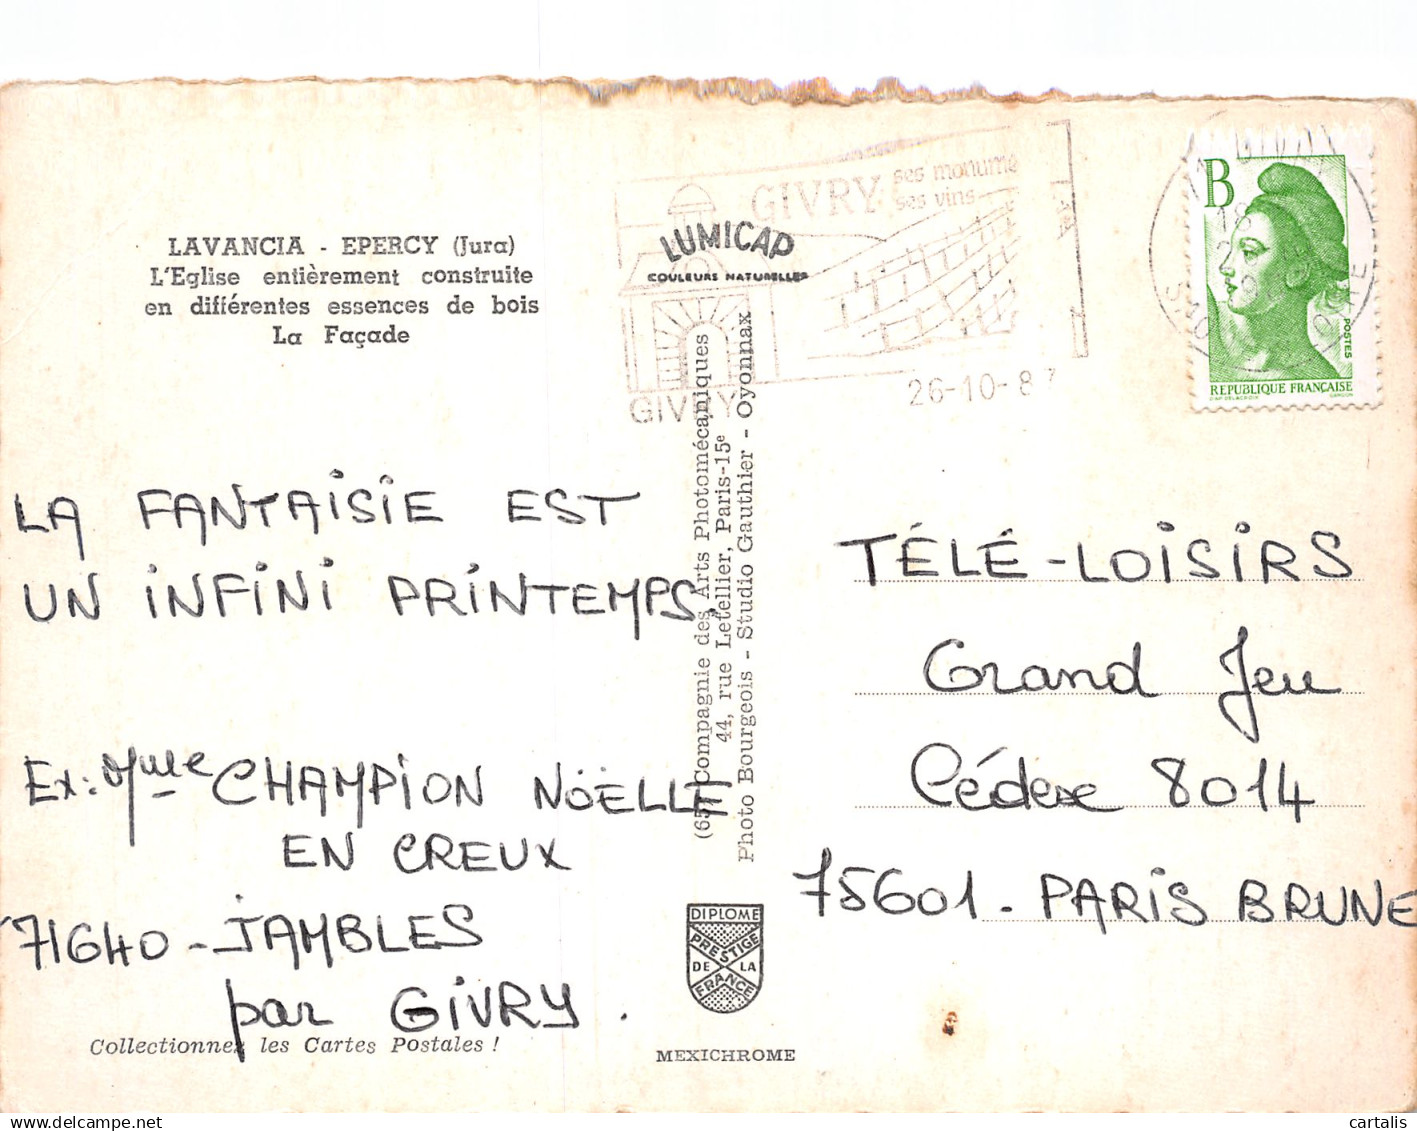 LAVANCIA - EPERCY (Jura)
L'Eglise entièrement construite
en différentes essences de bois
La Façade
GIVRY ses monume
ses vins
LUMICAP
COULEURS NATURELLES
GIVRY
26-10-87
B
18
POSTES
REPUBLIQUE FRANÇAISE
D'AP DELACROIX GANDON
LA FANTAISIE EST
UN INFINI PRINTEMPS.
Ex: Mme CHAMPION NÖELLE
EN CREUX
71640 - JAMBLES
par GIVRY.
Collectionnez les Cartes Postales !
Compagnie des Arts Photomécaniques
44, rue Letellier, Paris-15e
Photo Bourgeois - Studio Gauthier - Oyonnax
DIPLOME
PRESTIGE
DE LA
FRANCE
MEXICHROME
TÉLÉ-LOISIRS
Grand Jeu
Cédex 8014
75601 - PARIS BRUNE
cartalis